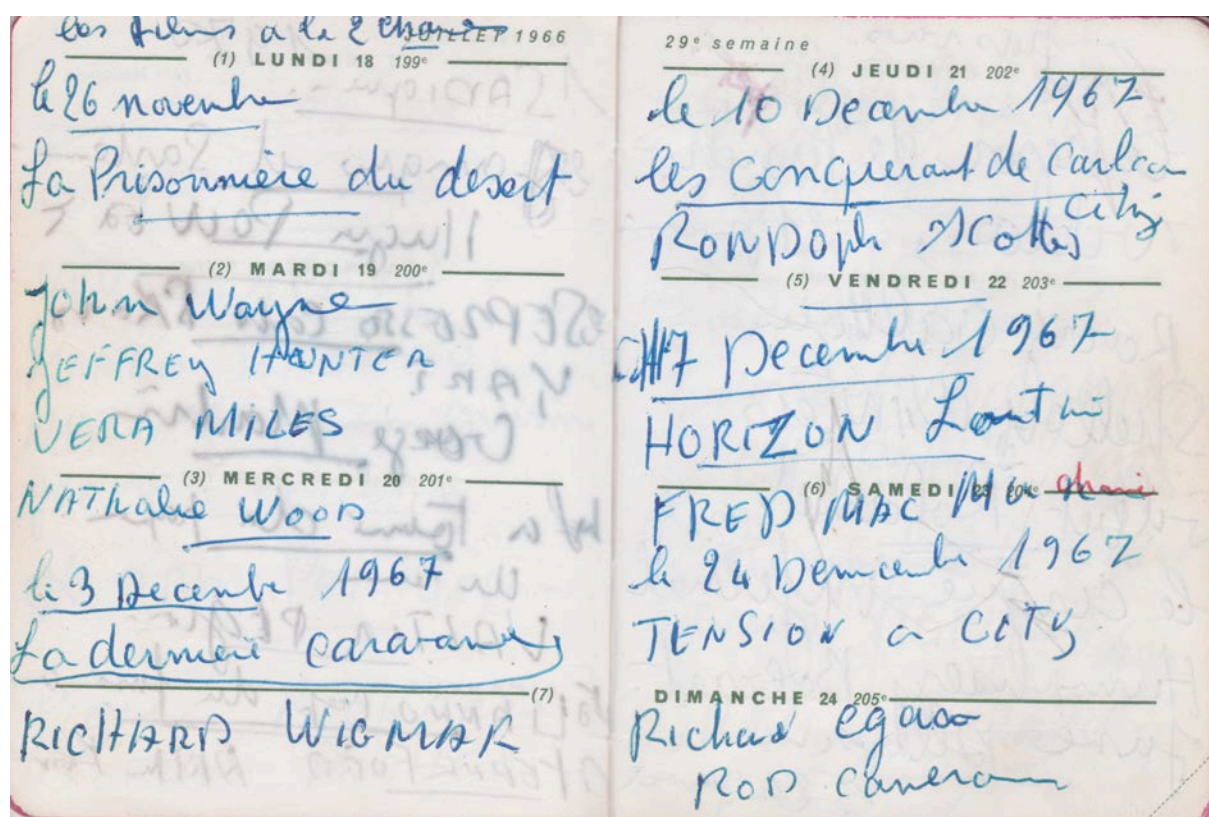 les films a la 2 chaine
JUILLET 1966
(1) LUNDI 18 199e
le 26 novembre
La Prisonnière du desert
(2) MARDI 19 200e
John Wayne
JEFFREY HUNTER
VERA MILES
(3) MERCREDI 20 201e
NAThalie WOOD
le 3 Decembre 1967
La derniere caravane
(7)
RICHARD WIGMAR
29e semaine
(4) JEUDI 21 202e
le 10 Decembre 1967
les Conquerant de Carson
City
RONDOPh SCottes
(5) VENDREDI 22 203e
17 Decembre 1967
HORIZON Lointin
(6) SAMEDI 23 204e
FRED MAC
le 24 Demcembre 1967
TENSION a CITY
DIMANCHE 24 205e
Richard egan
ROD Cameron